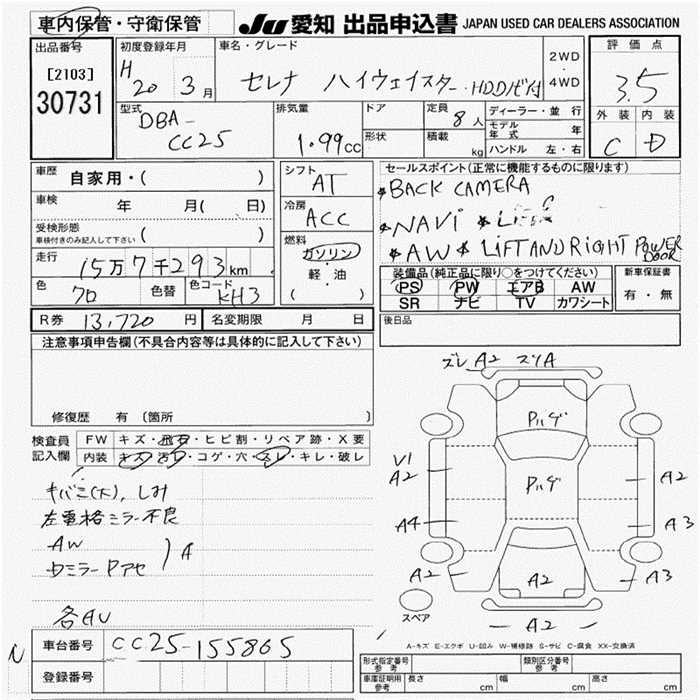 車内保管・守衛保管
JU 愛知 出品申込書 JAPAN USED CAR DEALERS ASSOCIATION
出品番号
[2103]
30731
初度登録年月
H 20 3月
車名・グレード
セレナ ハイウェイスター HDDナビ付
2WD
・
4WD
評価点
3.5
外装 内装
C D
型式
DBA-
CC25
排気量
1.99cc
ドア
形状
定員
8人
積載
kg
ディーラー・並行
モデル年式 年
ハンドル 左・右
車歴
自家用・( )
車検
年 月( 日)
受検形態
車検付きのみ記入して下さい ( )
走行
15万7千293km
色
クロ
色替
色コード
KH3
シフト
AT
冷房
ACC
燃料
ガソリン
・
軽・油
( )
セールスポイント(正常に機能するものに限ります)
*BACK CAMERA
*NAVI *
*AW * LIFT AND RIGHT POWER DOOR
装備品(純正品に限り○をつけてください)
PS PW エアB AW
SR ナビ TV カワシート
新車保証書
有・無
R券 13,720円
名変期限 月 日
後日品
注意事項申告欄(不具合内容等は具体的に記入して下さい)
修復歴 有〔箇所
検査員記入欄
FW キズ・飛石・ヒビ割・リペア跡・X要
内装 キズ・汚レ・コゲ・穴・スレ・キレ・破レ
キバミ(大), しみ
左電格ミラー不良
AW
ウミラーPアセ
A
各AU
ズレ A2 スリA
Pハゲ
Pハゲ
V1
A2
A2
A4
A3
A2
A2
A3
スペア
A2
A-キズ E-エクボ U-凹み W-補修跡 S-サビ C-腐食 XX-交換済
N
車台番号 CC25-155865
登録番号
形式指定番号 参考
類別区分番号 参考
車庫証明用 参考 長さ cm 幅 cm 高さ cm